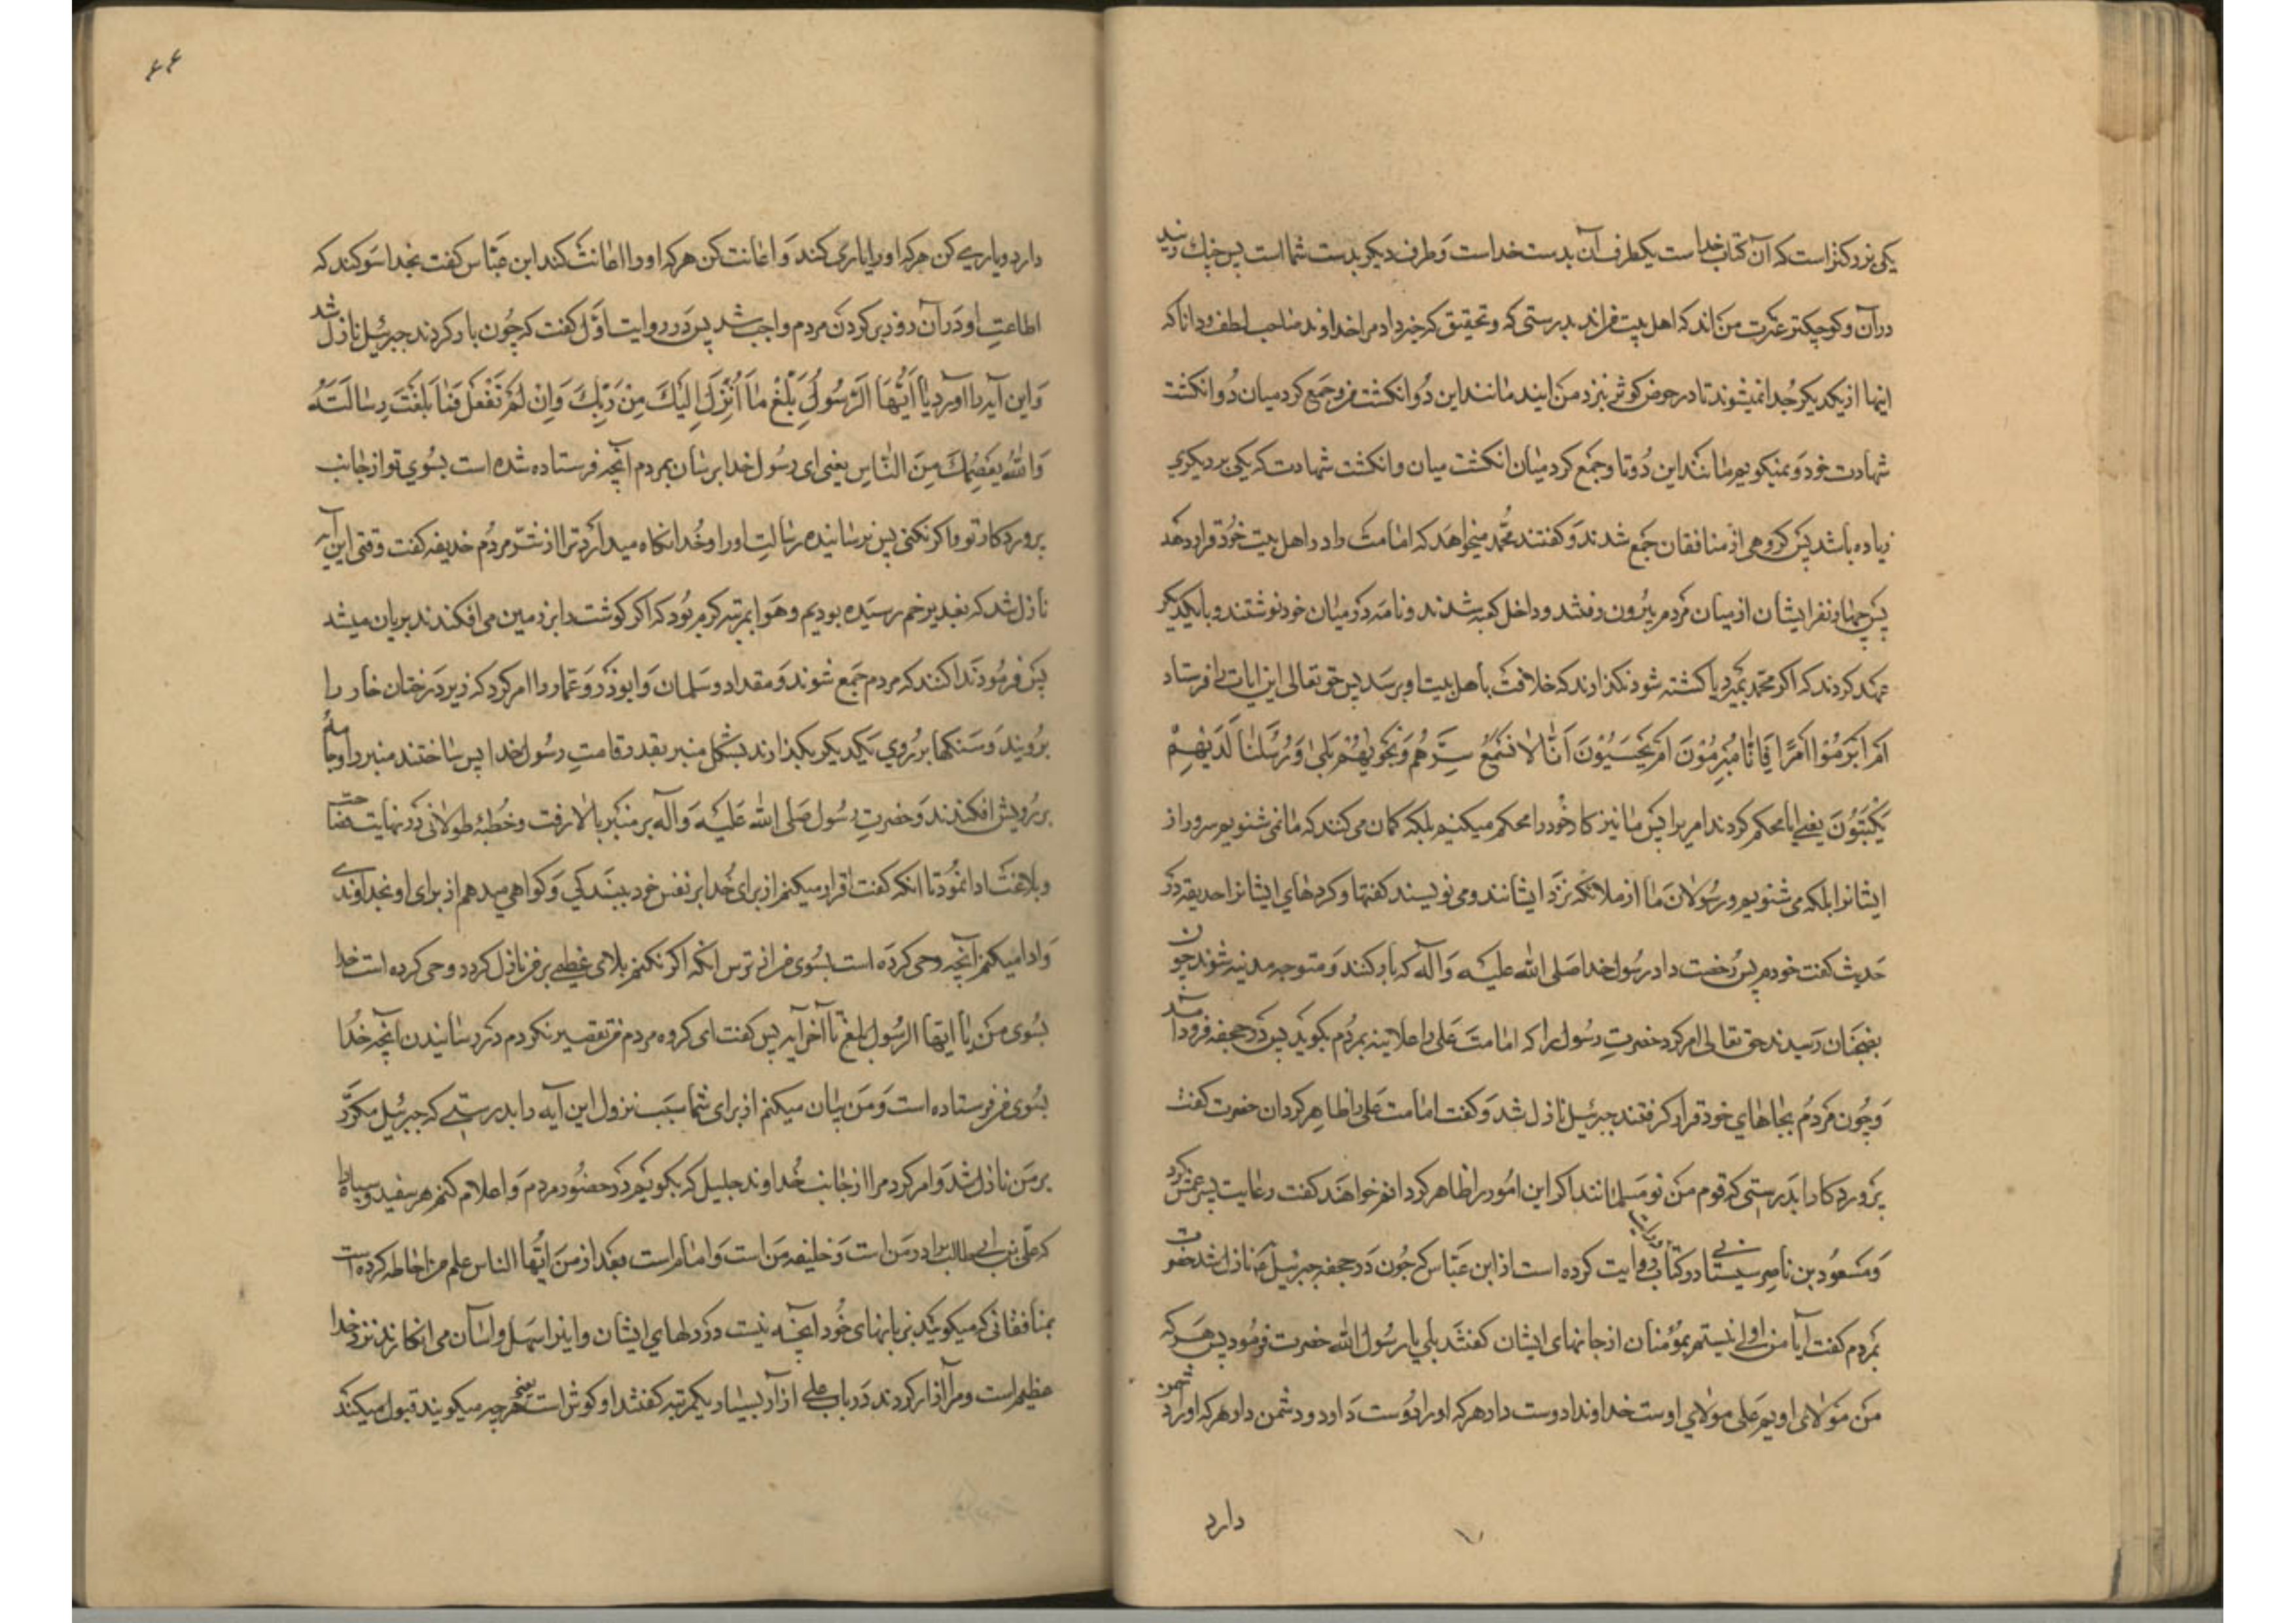 یکی بزرکتر است که آن کتاب خدا است یکطرف آن بدست خداست وَطرف دیکر بدست شما است پس چنك زنید
در آن و کوچکتر عترت من اند که اهل بیت من اند بدرستی که و تحقیق که خبر داد مرا خداوند صاحب لطف و دانا که
اینها از یکدیکر جُدا نمیشوند تا در حوض کوثر بنزد من ایند مانند این دُو انکشت من و جمع کرد میان دُو انکشت
شهادت خود وَ نمیکویم مانند این دُوتا و جمع کرد میان انکشت میان و انکشت شهادت که یکی بر دیکری
زیاده باشد پس کروهی از منافقان جمع شدند وَ کفتند محمّد میخواهد که امامت را در اهل بیت خود قرار دهد
پس چهار نفر ایشان از میان مردم بیرون رفتند و داخل کعبه شدند و نامه در میان خود نوشتند و با یکدیکر
عهد کردند که اکر محمّد بمیرد یا کشته شود نکذارند که خلافت بأهل بیت او برسد پس حق تعالی این ایات را فرستاد
اَمْ اَبْرَمُوْا اَمْرًا فَاِنَّا مُبْرِمُوْنَ اَمْ یَحْسَبُوْنَ اَنَّا لا نَسْمَعُ سِرَّهُمْ وَ نَجْویٰهُمْ بَلیٰ وَ رُسُلُنَا لَدَیْهِمْ
یَکْتُبُوْنَ یعنی ایا محکم کردند امریرا پس ما نیز کار خود را محکم میکنیم بلکه کمان می کنند که ما نمی شنویم سر و راز
ایشانرا بلکه می شنویم و رسُولان ما از ملائکه نزد ایشانند و می نویسند کفتها و کردهای ایشانرا حذیفه در
حَدیث کفت خودم پس رُخصت داد رسُول خدا صَلی الله علیه وَ آله که بار کنند وَ متوجه مدینه شوند چون
بضجنان رَسیدند حق تعالی امر کرد حضرتِ رسُول را که امامت عَلی را علانیه بمردُم بکوید پس در جحفه فرود آمد
وَ چُون مَردُم بجاهای خود قرار کرفتند جبرئیل نازل شد وَ کفت امامت علی را ظاهر کردان حضرت کفت
پَروردکارا بدَرستی که قوم من نو مُسلمانند اکر این امُور را ظاهر کردانم خواهند کفت رعایت پسر عمش کرد
وَ مَسعُود بن ناصر سیستانی در کتاب روایت کرده است از ابن عَبّاس که چُون در جحفه جبرئیل نازل شد حضرت
بمَردم کفت آیا من اولی نیستم بمؤمنان از جانهای ایشان کفتند بلی یا رسُول الله حضرت فرمُود پس هَر که
مَن مَولای اویم عَلی مولای اوست خداوندا دوست دار هر که او را دُوست دَارد و دشمن دار هر که او را دشمن
دارد
٤٤
دارد و یاری کن هر که او را یاری کند وَ اعانت کن هر که او را اعانت کند ابن عبّاس کفت بخدا سَوکند که
اطاعتِ او دَر آن روز بر کردن مردم واجب شد پس دَر روایت اوّل کفت که چُون بار کردند جبرئیل نازل شد
وَ این آیه را آورد یٰا اَیُّهَا الرَّسُولُ بَلِّغْ مٰا اُنْزِلَ اِلَیْكَ مِنْ رَبِّكَ وَ اِنْ لَمْ تَفْعَلْ فَمٰا بَلَّغْتَ رِسٰالَتَهُ
وَاللّٰهُ یَعْصِمُكَ مِنَ النّٰاسِ یعنی ای رسُول خدا برسان بمردم آنچه فرستاده شده است بسُوی تو از جانب
پروردکار تو و اکر نکنی پس نرسانیده رسالتِ او را و خُدا نکاه میدارد ترا از شرّ مردُم حذیفه کفت وقتی این آیه
نازل شد که بغدیر خم رسیده بودیم و هَوا بمرتبه کرم بُود که اکر کوشت را بر زمین می افکندند بریان میشد
پس فرمُود ندا کنند که مردم جَمع شوند وَ مقداد و سَلمان وَ ابوذر وَ عَمّار را امر کرد که زیر دَرختان خار را
برُویند وَ سَنکها بر رُوی یَکدیکر بکذارند بشکل منبر بقدر قامتِ رسُول خدا پس ساختند منبر را و جامهٔ
بر رُویش افکندند وَ حضرتِ رسُول صَلی الله عَلیه وَ آله بر منبر بالا رفت و خُطبهٔ طولانی در نهایت فصاحت
و بلاغت ادا نمُود تا انکه کفت اقرار میکنم از برای خُدا بر نفس خود ببندکی وَ کواهی میدهم از برای او بخداوندی
وَ ادا میکنم آنچه وحی کرده است بسُوی من از ترس انکه اکر نکنم بلای عظیمی بر من نازل کردد وحی کرده است خدا
بسُوی من یٰا ایها الرسُول بلغ تا آخر آیه پس کفت ای کروه مردم من تقصیر نکردم در رسانیدن آنچه خُدا
بسُوی من فرستاده است وَ مَن بیان میکنم از برای شما سَبَب نزول این آیه را بدرستی که جبرئیل مکرّر
بر من نازل شد وَ امر کرد مرا از جانب خُداوند جلیل که بکویم در حضُور مردم وَ اعلام کنم هر سفید و سیاه را
که علی بن ابی طالب برادر من است وَ خلیفه من است وَ امام است بعد از من ایُّها الناس علم من احاطه کرده است
بمنافقانی که میکویند بزبانهای خُود آنچه نیست در دلهای ایشان و اینرا سهل و آسان می انکارند و نزد خدا
عظیم است و مرا آزار کردند در باب علی آزار بسیار یکمرتبه کفتند او کوش است یعنی هر چه میکویند قبول میکند